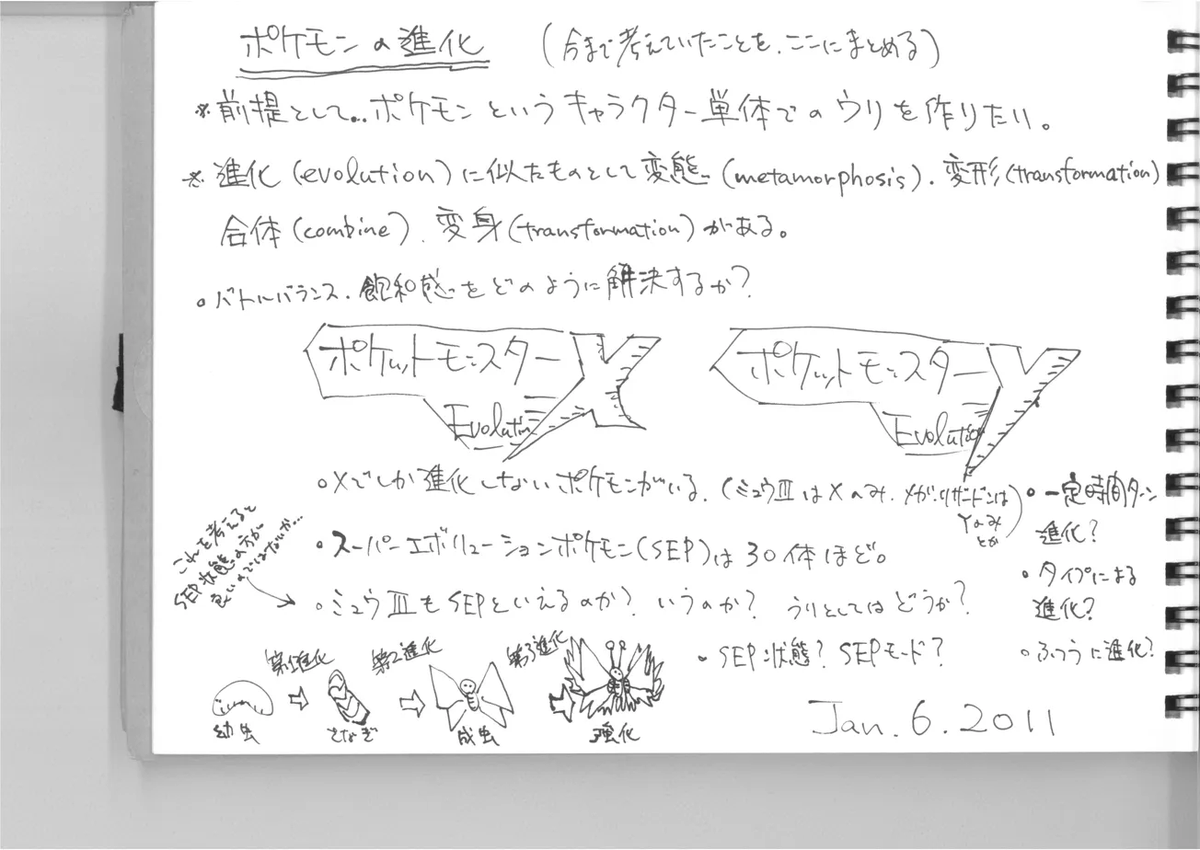 ポケモンの進化 (今まで考えていたことを、ここにまとめる)
※前提として…ポケモンというキャラクター単体でのウリを作りたい。
※進化(evolution)に似たものとして変態(metamorphosis)、変形(transformation)
合体(combine)、変身(transformation)がある。
○バトルバランス、飽和感をどのように解決するか?
ポケットモンスターX
Evolution
ポケットモンスターY
Evolution
○Xでしか進化しないポケモンがいる。(ミュウⅢはXのみ、メガリザードンは
Yのみ
とか)
・スーパーエボリューションポケモン(SEP)は30体ほど。
これを考えると
SEP状態の方が
良いのではないか…
・ミュウⅢもSEPといえるのか? いうのか? うりとしてはどうか?
・SEP状態? SEPモード?
・一定時間ターン
進化?
・タイプによる
進化?
○ふつうに進化?
第1進化
第2進化
第3進化
幼虫
さなぎ
成虫
強化
Jan. 6. 2011